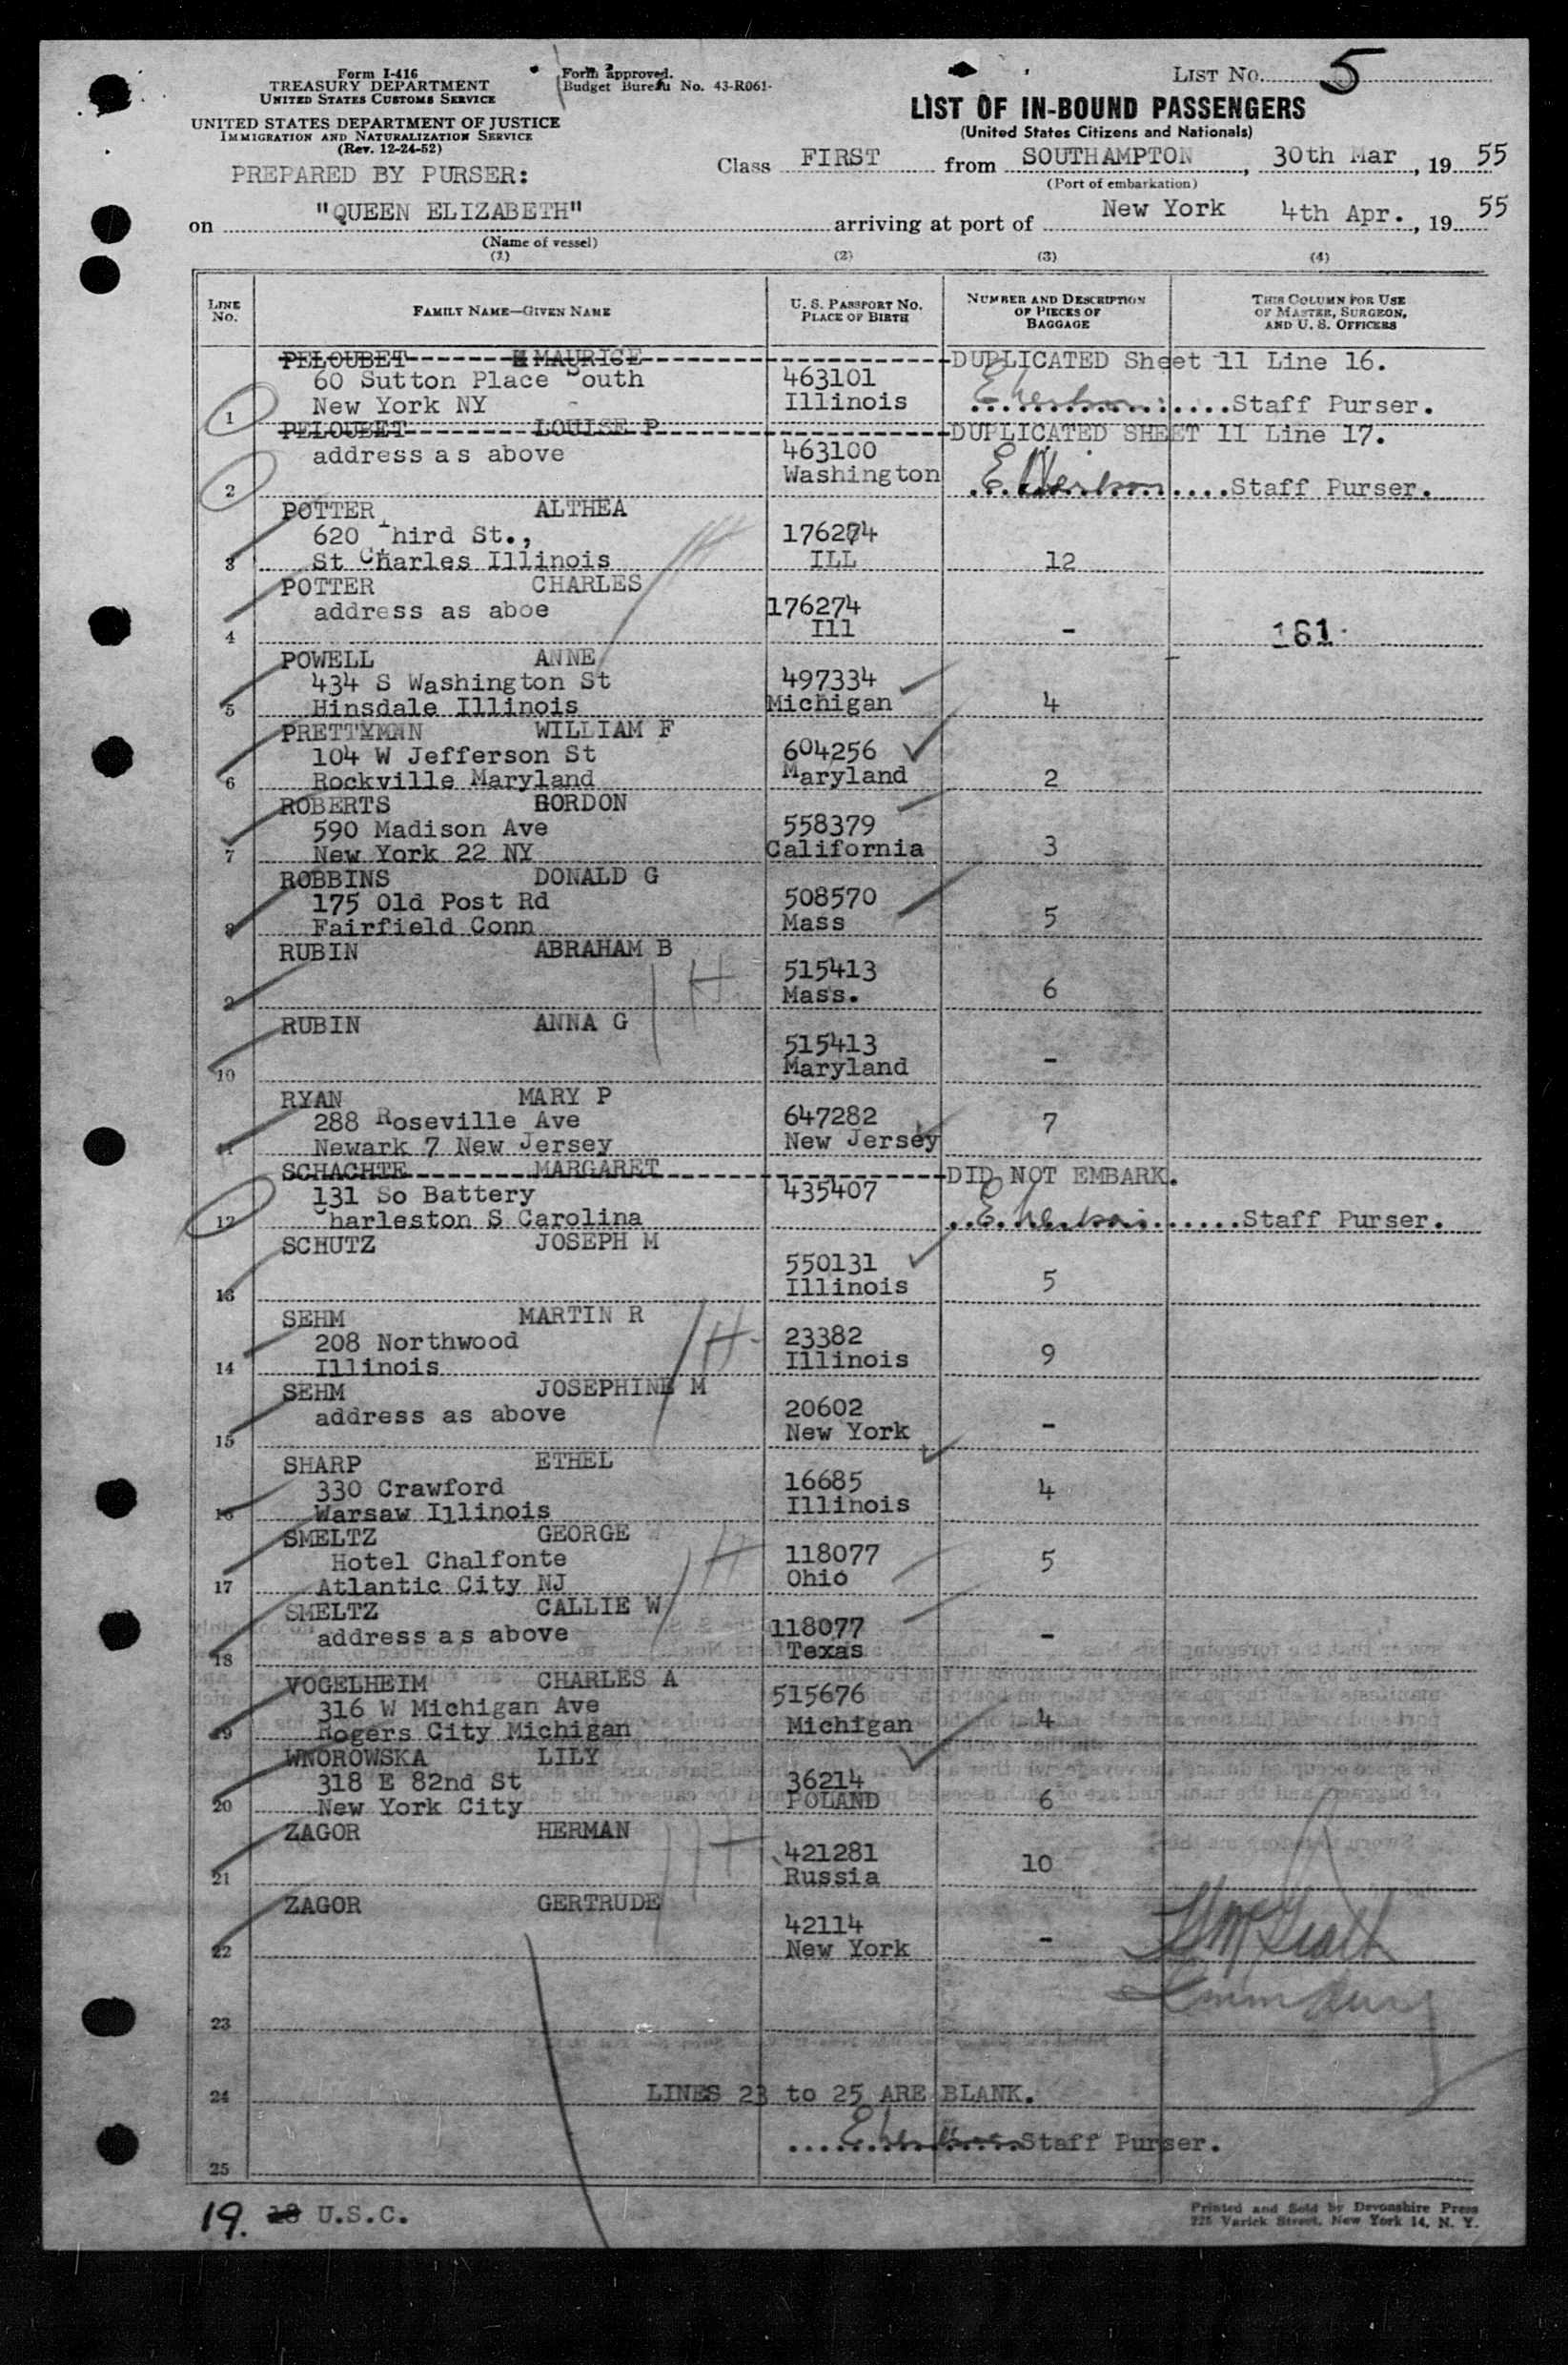 Form I-416
TREASURY DEPARTMENT
UNITED STATES CUSTOMS SERVICE
UNITED STATES DEPARTMENT OF JUSTICE
IMMIGRATION AND NATURALIZATION SERVICE
(Rev. 12-24-52)
Form approved.
Budget Bureau No. 43-R061-
LIST NO. 5
LIST OF IN-BOUND PASSENGERS
(United States Citizens and Nationals)
PREPARED BY PURSER:
Class FIRST from SOUTHAMPTON, 30th Mar, 19 55
(Port of embarkation)
on "QUEEN ELIZABETH" arriving at port of New York 4th Apr., 19 55
(Name of vessel)
(1) (2) (3) (4)
LINE NO. FAMILY NAME—GIVEN NAME U. S. PASSPORT NO. PLACE OF BIRTH NUMBER AND DESCRIPTION OF PIECES OF BAGGAGE THIS COLUMN FOR USE OF MASTER, SURGEON, AND U. S. OFFICERS
PELOUBET MAURICE DUPLICATED Sheet 11 Line 16.
60 Sutton Place South 463101
1 New York NY Illinois Staff Purser.
PELOUBET LOUISE P DUPLICATED SHEET 11 Line 17.
address as above 463100
2 Washington Staff Purser.
POTTER ALTHEA
620 Third St., 176274
3 St Charles Illinois ILL 12
POTTER CHARLES
address as aboe 176274
4 Ill - 161
POWELL ANNE
434 S Washington St 497334
5 Hinsdale Illinois Michigan 4
PRETTYMAN WILLIAM F
104 W Jefferson St 604256
6 Rockville Maryland Maryland 2
ROBERTS GORDON
590 Madison Ave 558379
7 New York 22 NY California 3
ROBBINS DONALD G
175 Old Post Rd 508570
8 Fairfield Conn Mass 5
RUBIN ABRAHAM B
515413
9 Mass. 6
RUBIN ANNA G
515413
10 Maryland -
RYAN MARY P
288 Roseville Ave 647282
11 Newark 7 New Jersey New Jersey 7
SCHACHTE MARGARET DID NOT EMBARK.
131 So Battery 435407
12 Charleston S Carolina Staff Purser.
SCHUTZ JOSEPH M
550131
13 Illinois 5
SEHM MARTIN R
208 Northwood 23382
14 Illinois Illinois 9
SEHM JOSEPHINE M
address as above 20602
15 New York -
SHARP ETHEL
330 Crawford 16685
16 Warsaw Illinois Illinois 4
SMELTZ GEORGE W
Hotel Chalfonte 118077
17 Atlantic City NJ Ohio 5
SMELTZ CALLIE W
address as above 118077
18 Texas -
VOGELHEIM CHARLES A
316 W Michigan Ave 515676
19 Rogers City Michigan Michigan 4
WNOROWSKA LILY
318 E 82nd St 36214
20 New York City POLAND 6
ZAGOR HERMAN
421281
21 Russia 10
ZAGOR GERTRUDE
42114
22 New York -
23
24 LINES 23 to 25 ARE BLANK.
Staff Purser.
25
19. 18 U.S.C.
Printed and Sold by Devonshire Press
225 Varick Street, New York 14, N. Y.